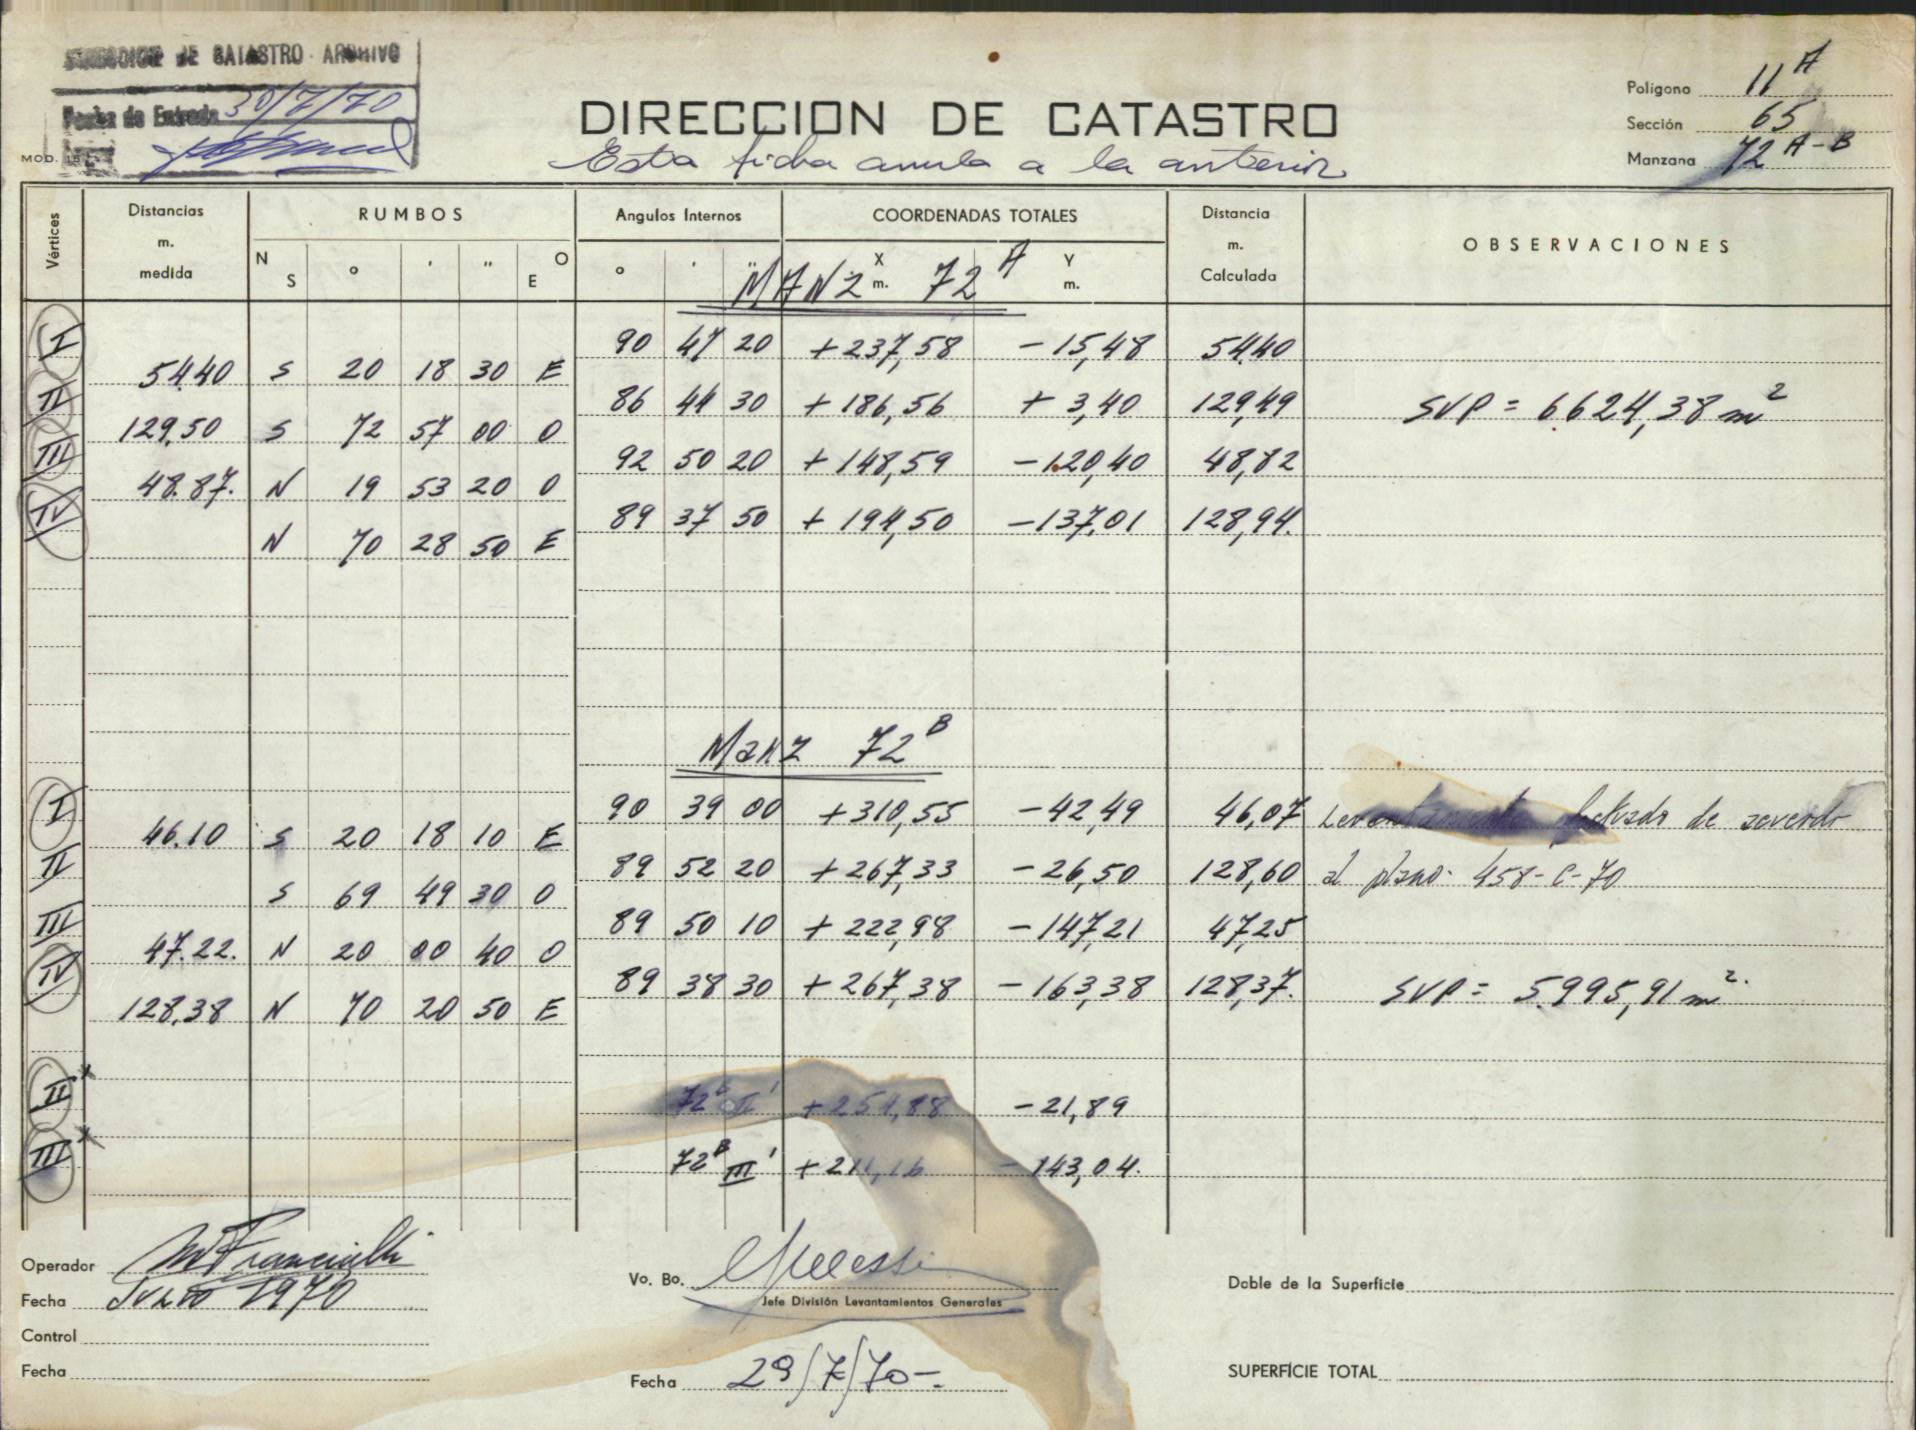 DIRECCION DE CATASTRO - ARCHIVO
Fecha de Entrada 30/7/70
MOD.
DIRECCION DE CATASTRO
Esta ficha anula a la anterior
Polígono 11 A
Sección 65
Manzana 72 A-B
Vértices Distancias m. medida RUMBOS Angulos Internos COORDENADAS TOTALES Distancia m. Calculada OBSERVACIONES
N S ° ' " O E ° ' " X m. Y m.
MANZ 72 A
I 90 47 20 +237,58 -15,48 54.40
54.40 S 20 18 30 E
II 86 44 30 +186,56 +3,40 129,49 SVP = 6.624,38 m²
129.50 S 72 57 00 O
III 92 50 20 +148,59 -120,40 48,82
48.87. N 19 53 20 O
IV 89 37 50 +194,50 -137,01 128,94.
N 70 28 50 E
Manz 72 B
I 90 39 00 +310,55 -42,49 46,07 Levantamiento efectuado de acuerdo
46.10 S 20 18 10 E
II 89 52 20 +267,33 -26,50 128,60 al plano. 458-C-70
S 69 49 30 O
III 89 50 10 +222,98 -147,21 47,25
47.22. N 20 00 40 O
IV 89 38 30 +267,38 -163,38 128,37. SVP = 5.995,91 m².
128,38 N 70 20 50 E
II x 72 B II' -21,89
III x 72 B III' +211,16 -143,04.
Operador
Fecha Julio 1970
Control
Fecha
Vo. Bo.
Jefe División Levantamientos Generales
Fecha 29/7/70-.
Doble de la Superficie
SUPERFICIE TOTAL